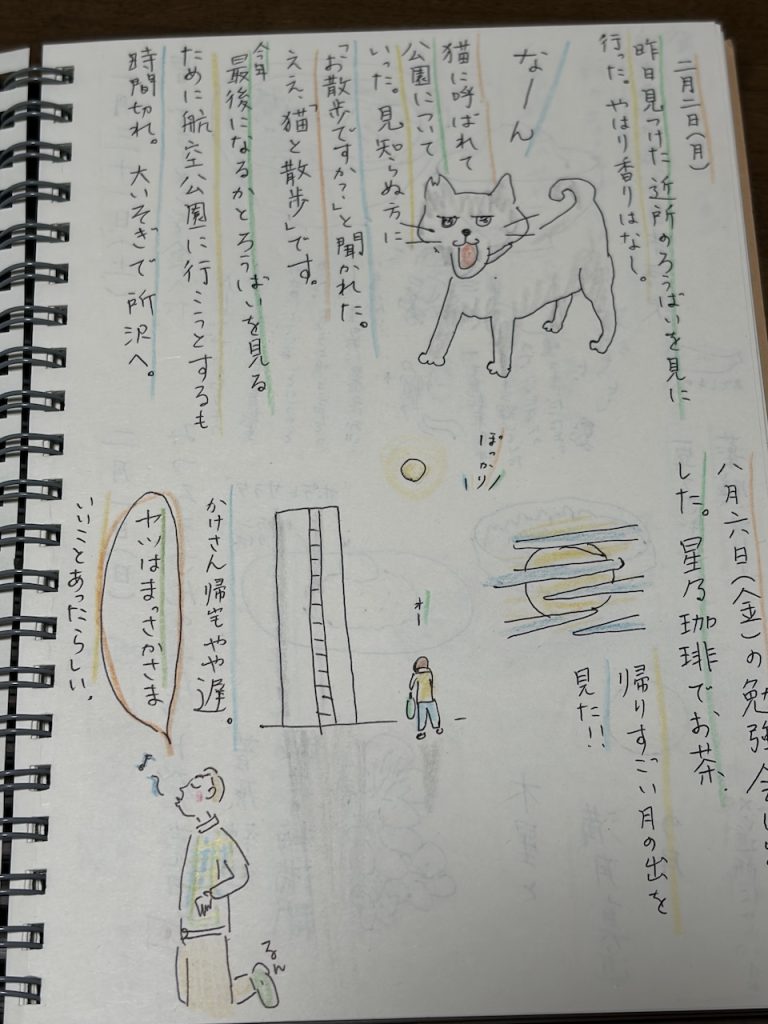 二月二日(月)
昨日見つけた近所のろうばいを見に
行った。やはり香りはなし。
なーん
猫に呼ばれて
公園について
いった。見知らぬ方に
「お散歩ですか?」と聞かれた。
ええ、「猫と散歩」です。
今年
最後になるかとろうばいを見る
ために航空公園に行こうとするも
時間切れ。大いそぎで所沢へ。
八月六日(金)の勉強会
した。星乃珈琲でお茶。
帰りすごい月の出を
見た!!
ぽっかり
オー
かけさん帰宅やや遅。
ヤツはまっさかさま
いいことあったらしい。
るん